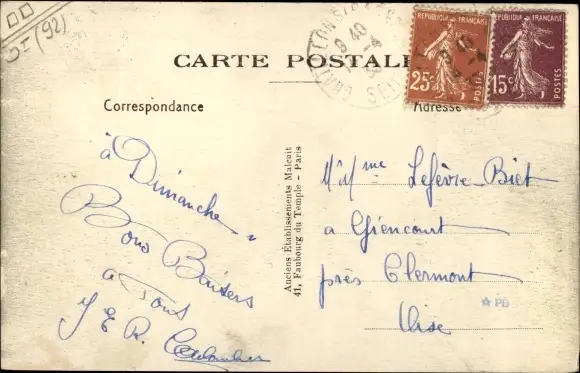 (92)
CARTE POSTALE
RÉPUBLIQUE FRANÇAISE
25c
POSTES
RÉPUBLIQUE FRANÇAISE
15c
POSTES
Correspondance
Adresse
à Dimanche
Bons Baisers
a Tous
J E R.
Anciens Établissements Malcuit
41, Faubourg du Temple - Paris
M Mme Lefèvre-Biet
a Giencourt
près Clermont
Oise
PB